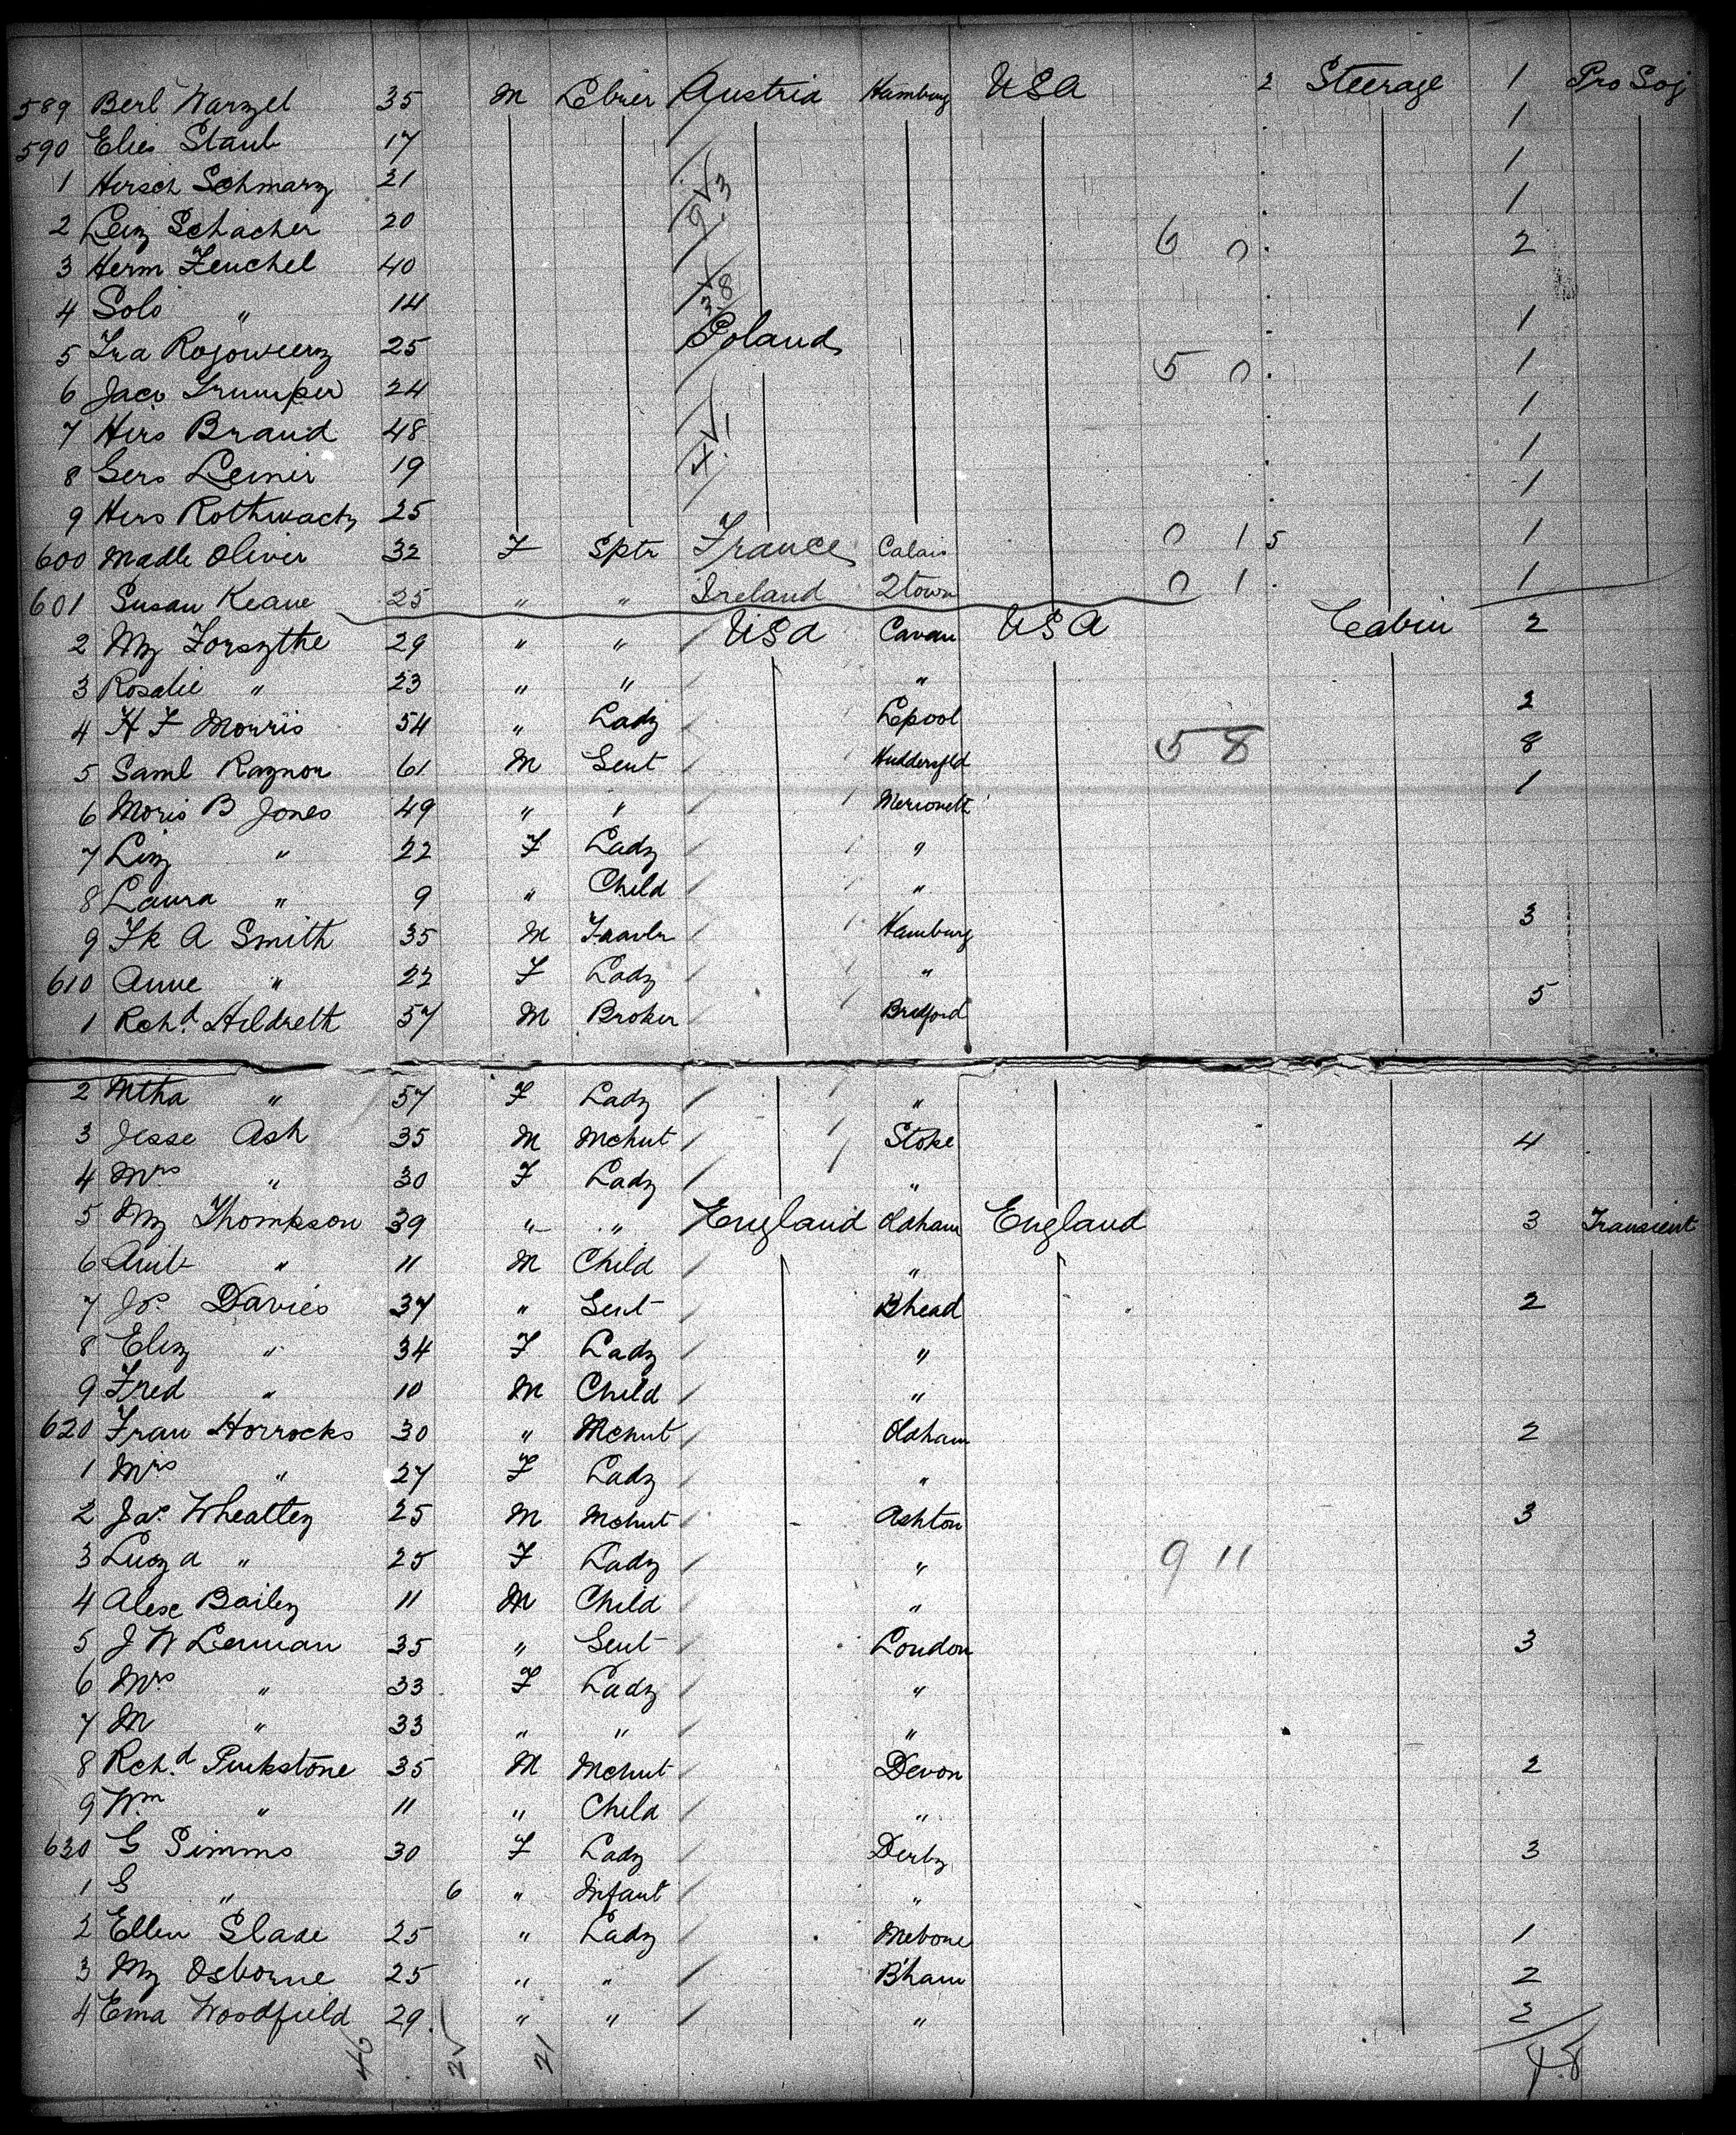 589 Berl Warzel 35 M Lbrer Austria Hamburg USA 2 Steerage 1 Pro Soj
590 Elies Staub 17 1
1 Hersch Schmarz 21 1
2 Leiz Schacher 20 1
3 Herm Zeuchel 40 6 0 2
4 Solo " 14
5 Ira Rojowierz 25 Poland 1
6 Jaco Trumper 24 5 0 1
7 Hers Braud 48 1
8 Gers Leinir 19 1
9 Hers Rothwachz 25 1
600 Madle Oliver 32 F Sptr France Calais 0 1 5 1
601 Susan Keane 25 " " Ireland 2town 0 1 1
2 My Forsythe 29 " " USA Cavan USA Cabin 2
3 Rosalie " 23 " " "
4 H F Morris 54 " Lady Lpool 2
5 Saml Raynor 61 M Gent Huddersfld 58 8
6 Moris B Jones 49 " " Merioneth 1
7 Liz " 22 F Lady "
8 Laura " 9 " Child "
9 Fk A Smith 35 M Travlr Hamburg 3
610 Anne " 22 F Lady "
1 Rchd Hildreth 57 M Broker Bradford 5
2 Mtha " 57 F Lady "
3 Jesse Ash 35 M Mchnt Stoke 4
4 Mrs " 30 F Lady "
5 My Thompson 39 " " England Oldham England 3 Transient
6 " 11 M Child "
7 Jos Davies 37 " Gent Bhead 2
8 Eliz " 34 F Lady "
9 Fred " 10 M Child "
620 Fran Horrocks 30 " Mchnt Oldham 2
1 Mrs " 27 F Lady "
2 Jas Wheatley 25 M Mchnt Ashton 3
3 Lucy A " 25 F Lady " 9 11
4 Alex Bailey 11 M Child "
5 J W Lerman 35 " Gent London 3
6 Mrs " 33 F Lady "
7 M " 33 " " "
8 Rchd Pinkstone 35 M Mchnt Devon 2
9 Wm " 11 " Child "
630 G Simms 30 F Lady Derby 3
1 G " 6 " Infant "
2 Ellen Slade 25 " Lady Mebone 1
3 My Osborne 25 " " B'ham 2
4 Ema Woodfield 29 " " " 2
46 25 21 48